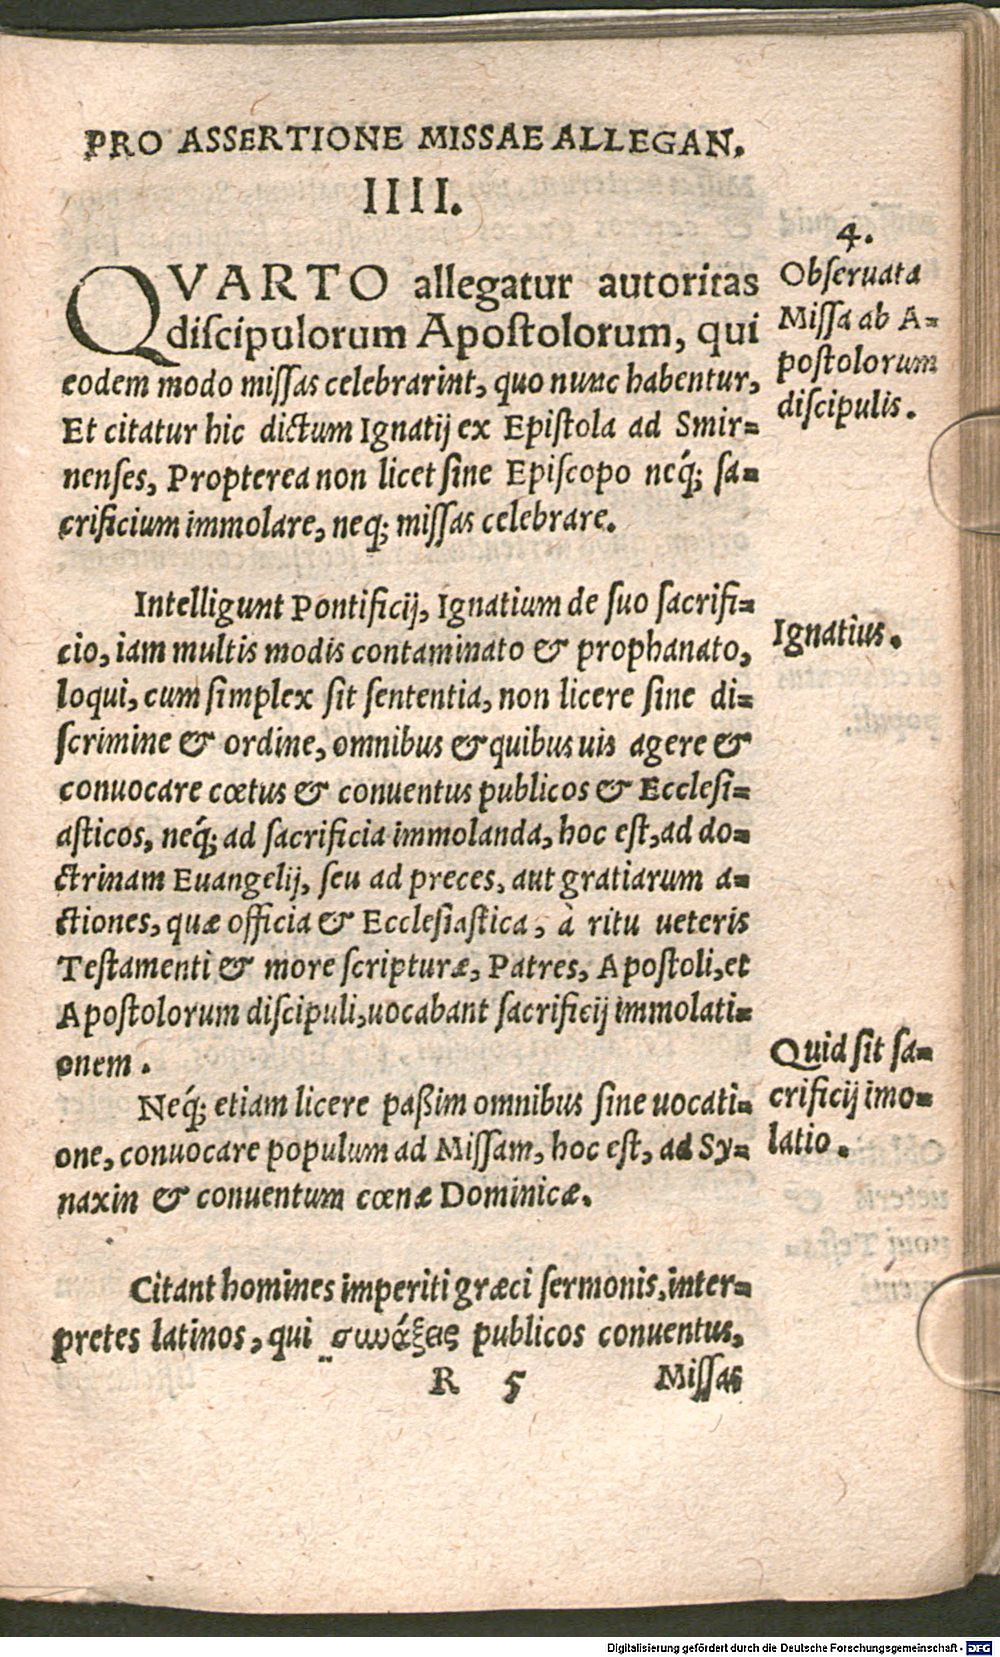 PRO ASSERTIONE MISSAE ALLEGAN.
IIII.
QVARTO allegatur autoritas
discipulorum Apostolorum, qui
eodem modo missas celebrarint, quo nunc habentur,
Et citatur hic dictum Ignatij ex Epistola ad Smir=
nenses, Propterea non licet sine Episcopo neq́; sa=
crificium immolare, neq; missas celebrare.
4.
Obseruata
Missa ab A=
postolorum
discipulis.
Intelligunt Pontificij, Ignatium de suo sacrifi=
cio, iam multis modis contaminato & prophanato,
loqui, cum simplex sit sententia, non licere sine di=
scrimine & ordine, omnibus & quibusuis agere &
conuocare cœtus & conuentus publicos & Ecclesi=
asticos, neq́; ad sacrificia immolanda, hoc est, ad do=
ctrinam Euangelij, seu ad preces, aut gratiarum a=
ctiones, quæ officia & Ecclesiastica, à ritu ueteris
Testamenti & more scripturæ, Patres, Apostoli, et
Apostolorum discipuli, uocabant sacrificij immolati=
onem.
Ignatius.
Neq́; etiam licere paßim omnibus sine uocati=
one, conuocare populum ad Missam, hoc est, ad Sy=
naxin & conuentum cœnæ Dominicæ.
Quid sit sa=
crificij imo=
latio.
Citant homines imperiti græci sermonis, inter=
pretes latinos, qui συνάξεις publicos conuentus,
R 5 Missas
Digitalisierung gefördert durch die Deutsche Forschungsgemeinschaft - DFG